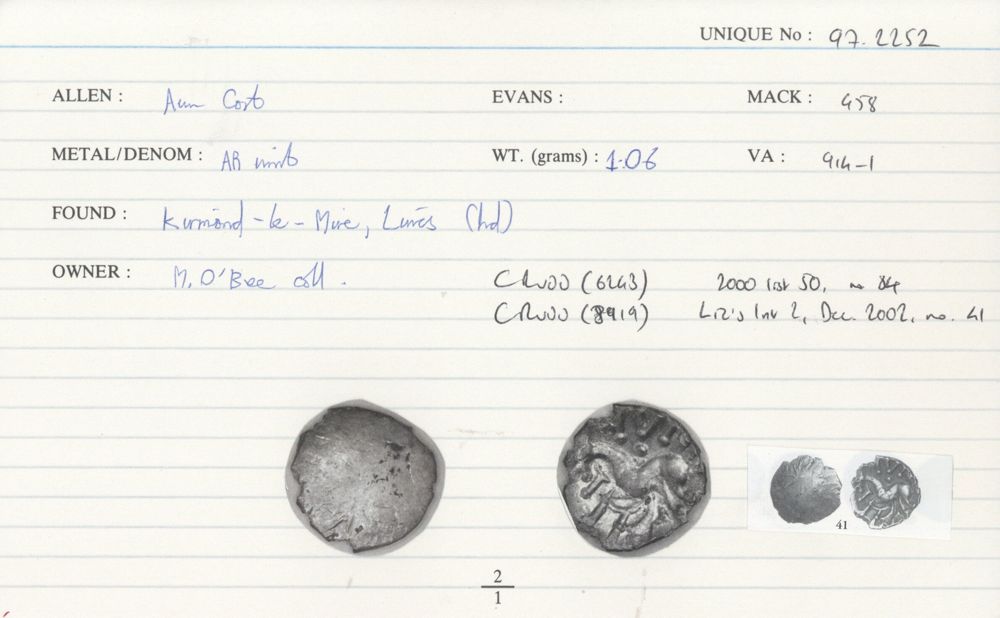 UNIQUE No : 97.2252
ALLEN : Aun Cost EVANS : MACK : 458
METAL/DENOM : AR unit WT. (grams) : 1.06 VA : 914-1
FOUND : Kirmond-le-Mire, Lincs (hd)
OWNER : M. O'Bee coll. CR (6243) 2000 list 50, no 84
CR (8919) Liz's Inv 2, Dec. 2002, no. 41
41
2
1